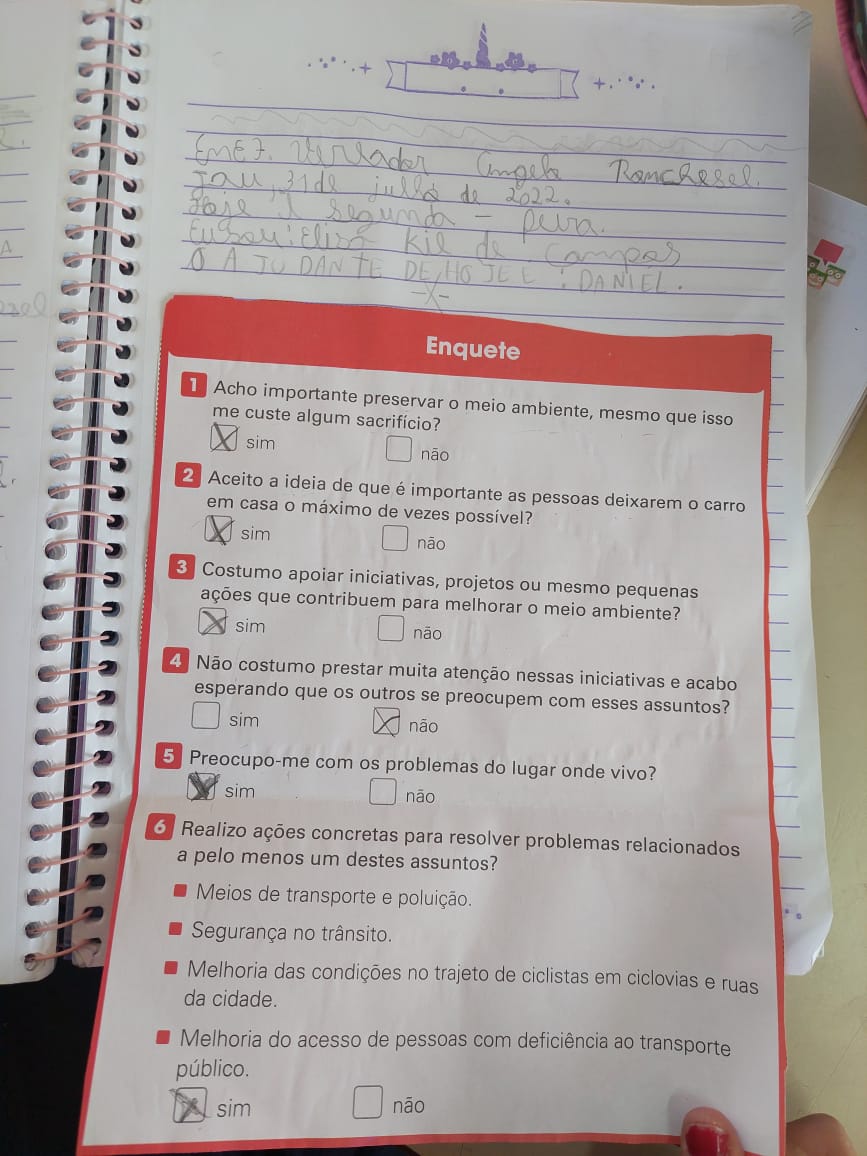 EMEF. Vereador Angelo Ronchesel.
Jau, 31 de julho de 2022.
Hoje é segunda - feira.
Eu sou: Elisa Kil de Campos
O AJUDANTE DE HOJE É : DANIEL.
-X-
Enquete
1 Acho importante preservar o meio ambiente, mesmo que isso
me custe algum sacrifício?
X sim não
2 Aceito a ideia de que é importante as pessoas deixarem o carro
em casa o máximo de vezes possível?
X sim não
3 Costumo apoiar iniciativas, projetos ou mesmo pequenas
ações que contribuem para melhorar o meio ambiente?
X sim não
4 Não costumo prestar muita atenção nessas iniciativas e acabo
esperando que os outros se preocupem com esses assuntos?
sim X não
5 Preocupo-me com os problemas do lugar onde vivo?
X sim não
6 Realizo ações concretas para resolver problemas relacionados
a pelo menos um destes assuntos?
Meios de transporte e poluição.
Segurança no trânsito.
Melhoria das condições no trajeto de ciclistas em ciclovias e ruas
da cidade.
Melhoria do acesso de pessoas com deficiência ao transporte
público.
X sim não